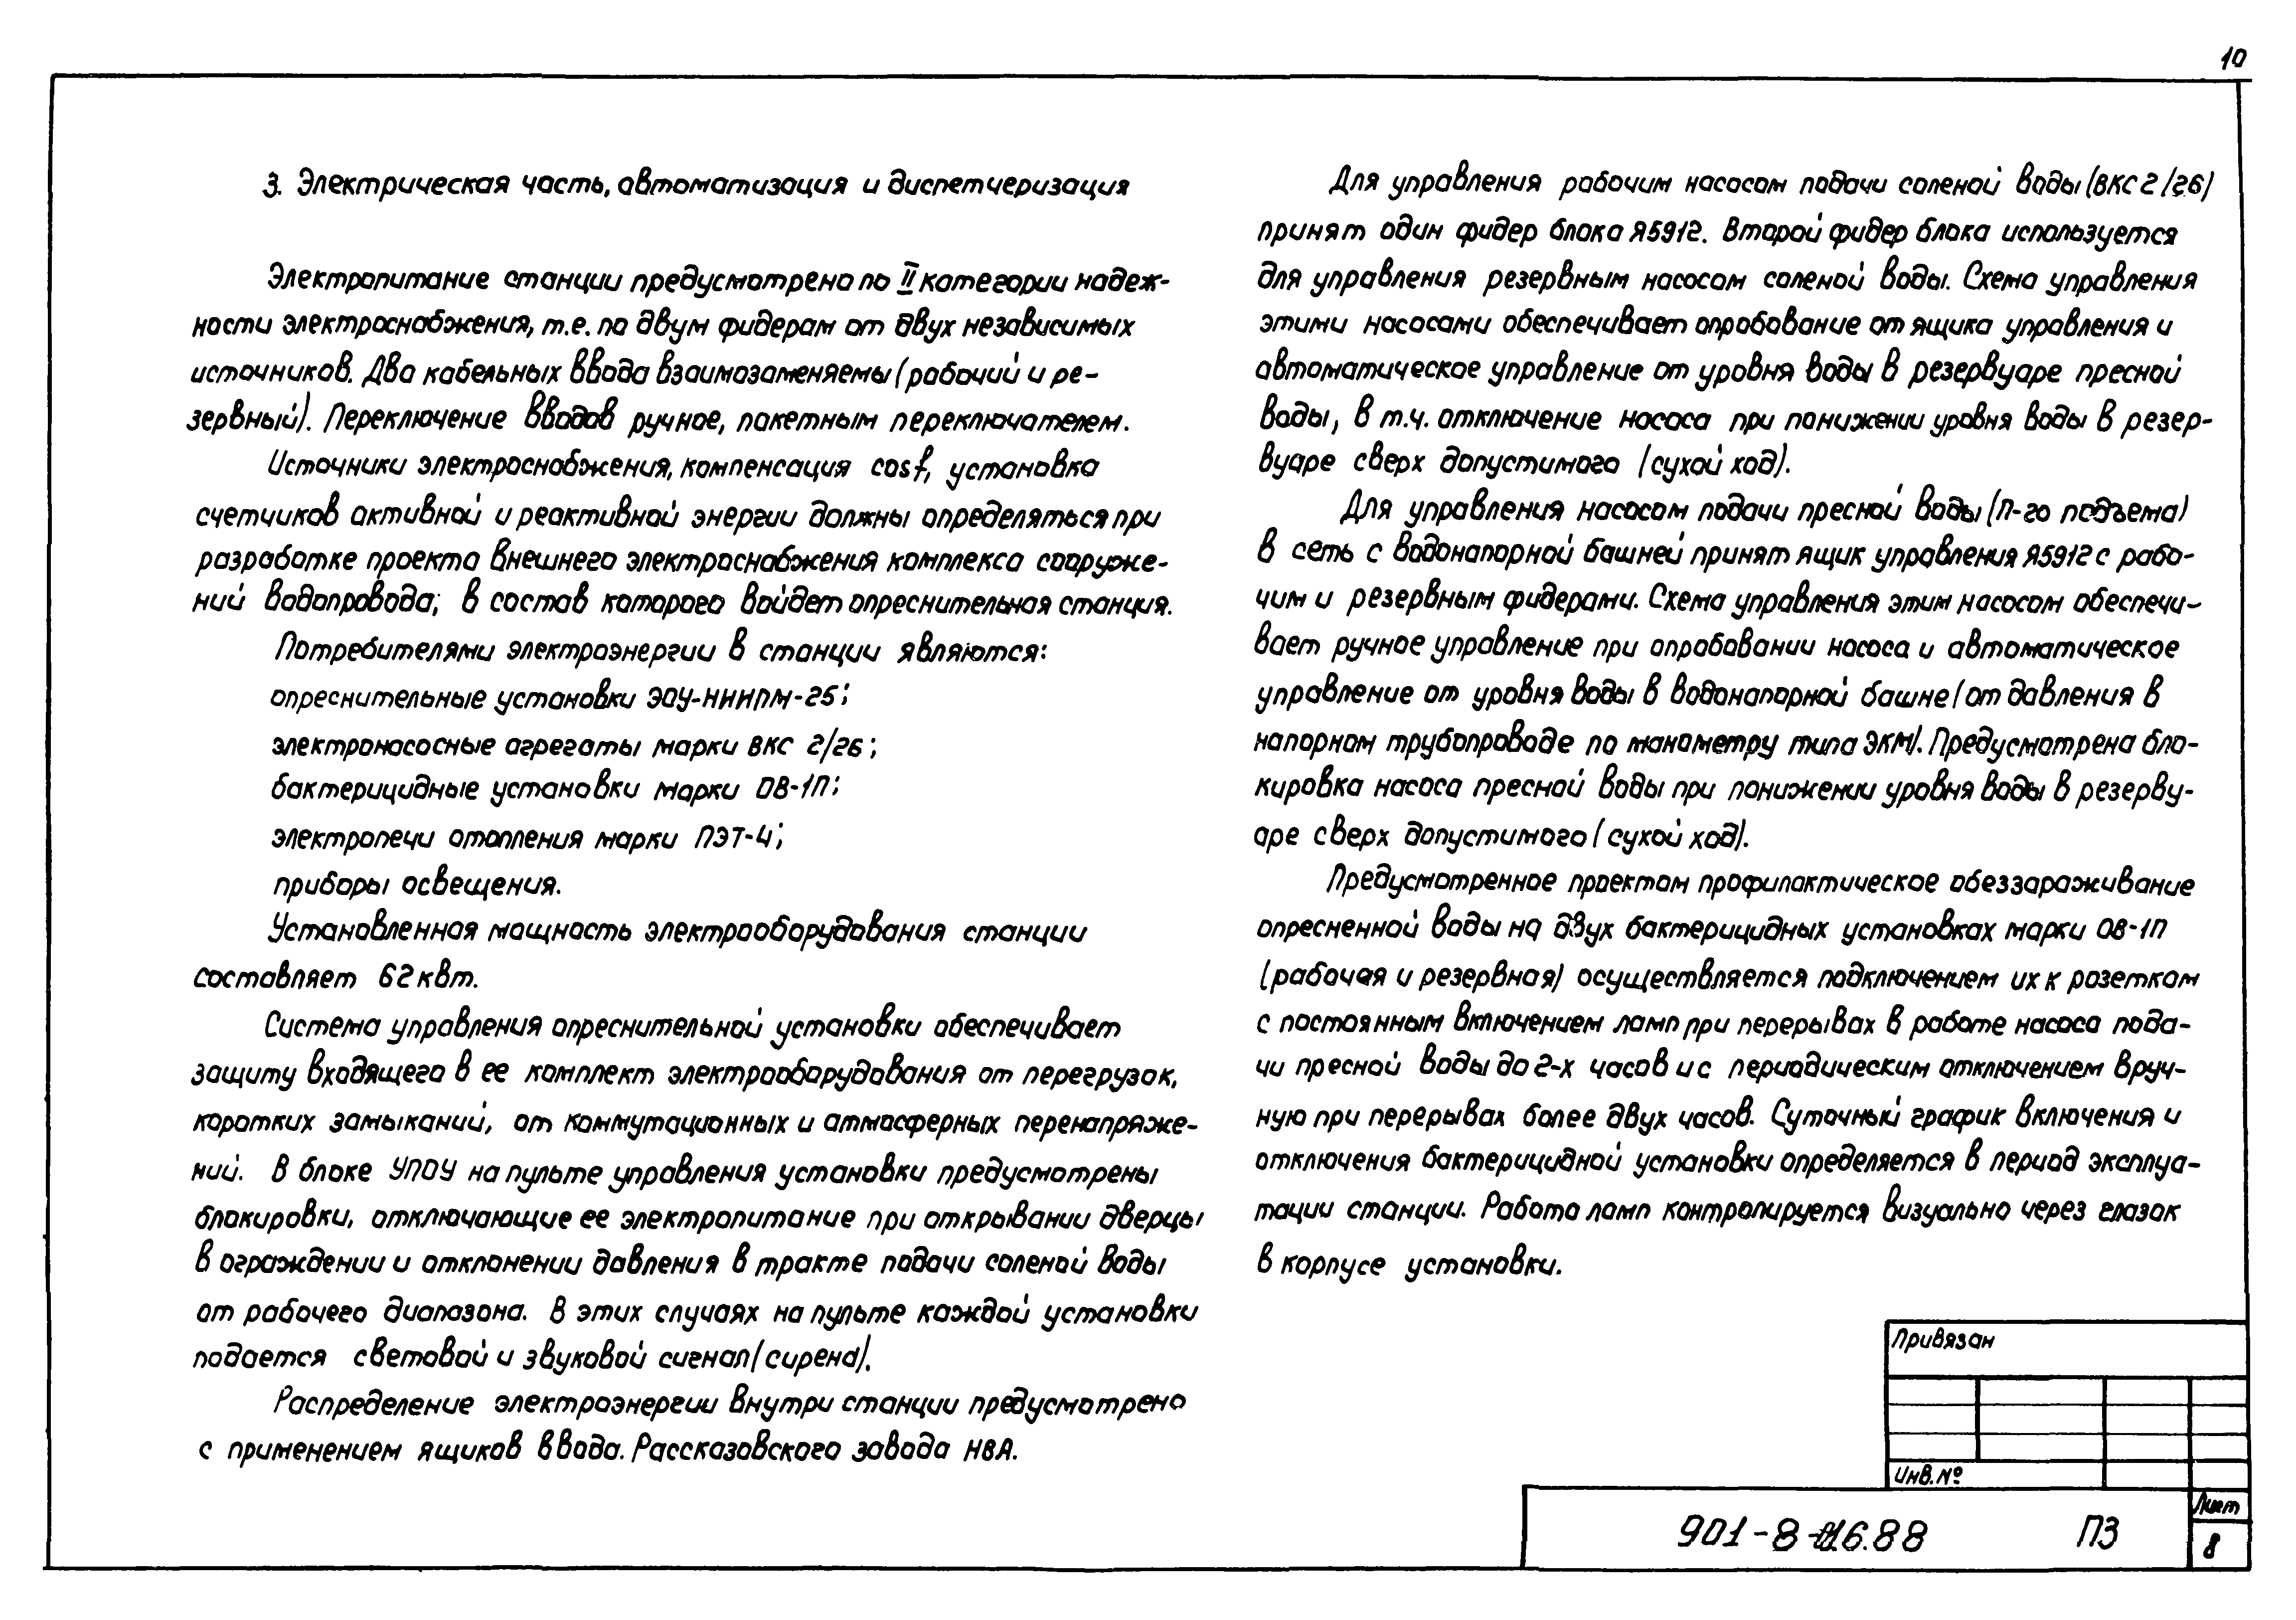 10
3. Электрическая часть, автоматизация и диспетчеризация
Электропитание станции предусмотрено по II категории надеж-
ности электроснабжения, т.е. по двум фидерам от двух независимых
источников. Два кабельных ввода взаимозаменяемы (рабочий и ре-
зервный). Переключение вводов ручное, пакетным переключателем.
Источники электроснабжения, компенсация cosf, установка
счетчиков активной и реактивной энергии должны определяться при
разработке проекта внешнего электроснабжения комплекса сооруже-
ний водопровода, в состав которого войдет опреснительная станция.
Потребителями электроэнергии в станции являются:
опреснительные установки ЭОУ-НИИПМ-25;
электронасосные агрегаты марки ВКС 2/26;
бактерицидные установки марки ОВ-1П;
электропечи отопления марки ПЭТ-4;
приборы освещения.
Установленная мощность электрооборудования станции
составляет 62 квт.
Система управления опреснительной установки обеспечивает
защиту входящего в ее комплект электрооборудования от перегрузок,
коротких замыканий, от коммутационных и атмосферных перенапряже-
ний. В блоке УПОУ на пульте управления установки предусмотрены
блокировки, отключающие ее электропитание при открывании дверцы
в ограждении и отклонении давления в тракте подачи соленой воды
от рабочего диапазона. В этих случаях на пульте каждой установки
подается световой и звуковой сигнал (сирена).
Распределение электроэнергии внутри станции предусмотрено
с применением ящиков ввода. Рассказовского завода НВА.
Для управления рабочим насосом подачи соленой воды (ВКС 2/26)
принят один фидер блока Я5912. Второй фидер блока используется
для управления резервным насосом соленой воды. Схема управления
этими насосами обеспечивает опробование от ящика управления и
автоматическое управление от уровня воды в резервуаре пресной
воды, в т.ч. отключение насоса при понижении уровня воды в резер-
вуаре сверх допустимого (сухой ход).
Для управления насосом подачи пресной воды (П-го подъема)
в сеть с водонапорной башней принят ящик управления Я5912 с рабо-
чим и резервным фидерами. Схема управления этим насосом обеспечи-
вает ручное управление при опробовании насоса и автоматическое
управление от уровня воды в водонапорной башне (от давления в
напорном трубопроводе по манометру типа ЭКМ). Предусмотрена бло-
кировка насоса пресной воды при понижении уровня воды в резерву-
аре сверх допустимого (сухой ход).
Предусмотренное проектом профилактическое обеззараживание
опресненной воды на двух бактерицидных установках марки ОВ-1П
(рабочая и резервная) осуществляется подключением их к розеткам
с постоянным включением ламп при перерывах в работе насоса пода-
чи пресной воды до 2-х часов и с периодическим отключением вруч-
ную при перерывах более двух часов. Суточный график включения и
отключения бактерицидной установки определяется в период эксплуа-
тации станции. Работа ламп контролируется визуально через глазок
в корпусе установки.
Привязан
Инв. №
901-8-16.88 ПЗ
Лист
8